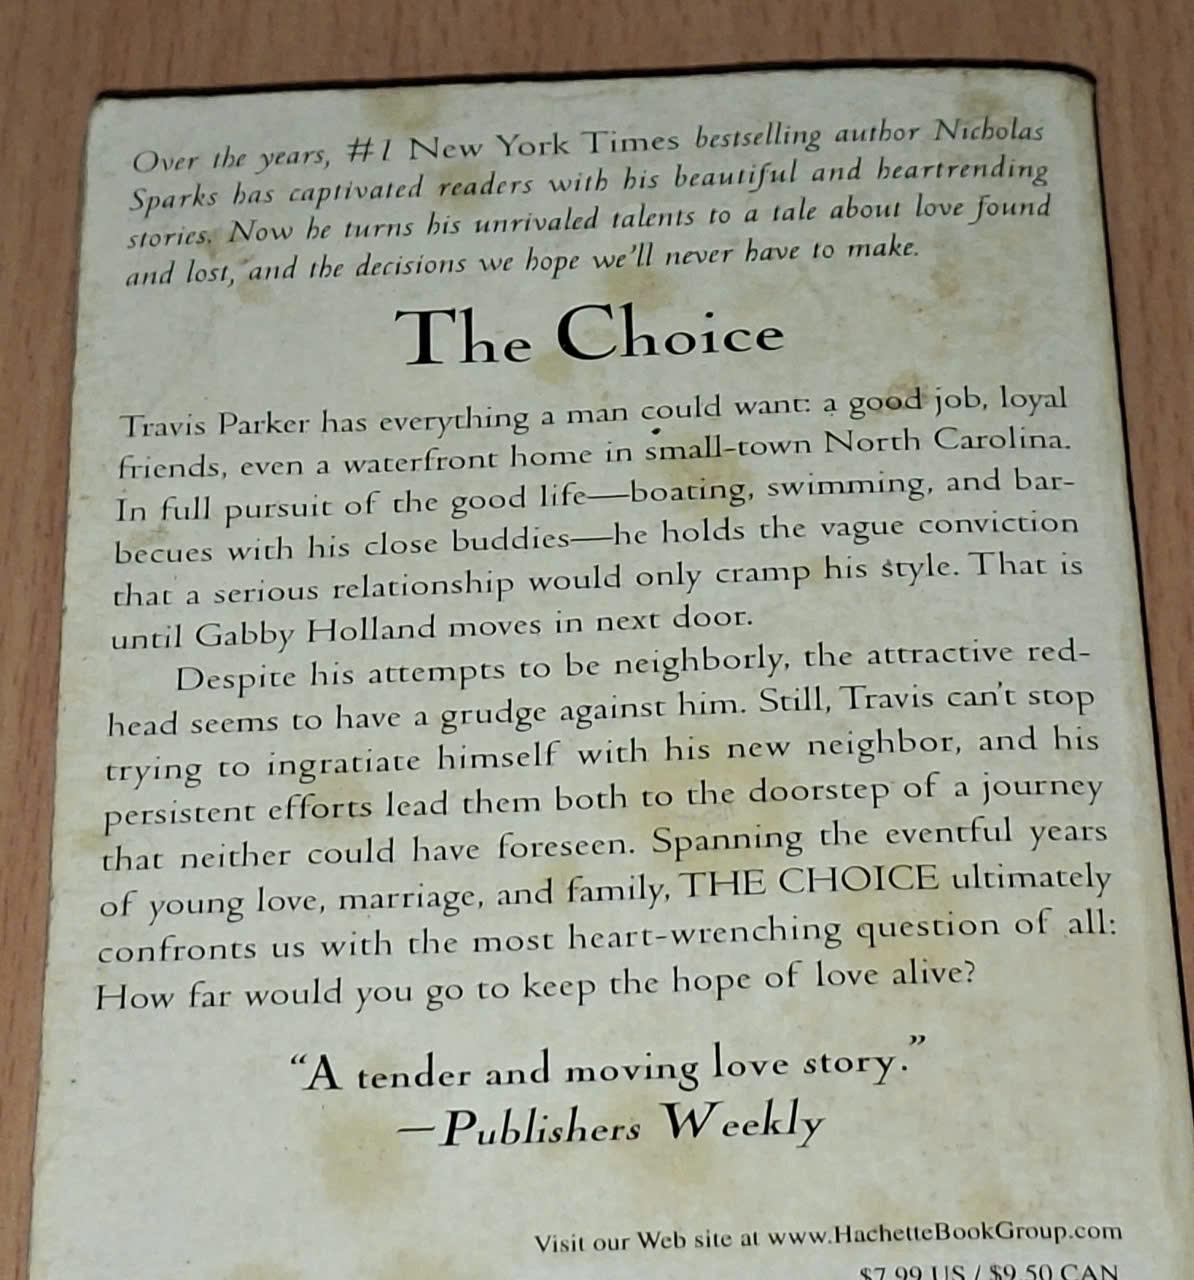 Over the years, #1 New York Times bestselling author Nicholas
Sparks has captivated readers with his beautiful and heartrending
stories. Now he turns his unrivaled talents to a tale about love found
and lost, and the decisions we hope we'll never have to make.
The Choice
Travis Parker has everything a man could want: a good job, loyal
friends, even a waterfront home in small-town North Carolina.
In full pursuit of the good life—boating, swimming, and bar-
becues with his close buddies—he holds the vague conviction
that a serious relationship would only cramp his style. That is
until Gabby Holland moves in next door.
Despite his attempts to be neighborly, the attractive red-
head seems to have a grudge against him. Still, Travis can't stop
trying to ingratiate himself with his new neighbor, and his
persistent efforts lead them both to the doorstep of a journey
that neither could have foreseen. Spanning the eventful years
of young love, marriage, and family, THE CHOICE ultimately
confronts us with the most heart-wrenching question of all:
How far would you go to keep the hope of love alive?
"A tender and moving love story."
—Publishers Weekly
Visit our Web site at www.HachetteBookGroup.com
$7.99 US / $9.50 CAN